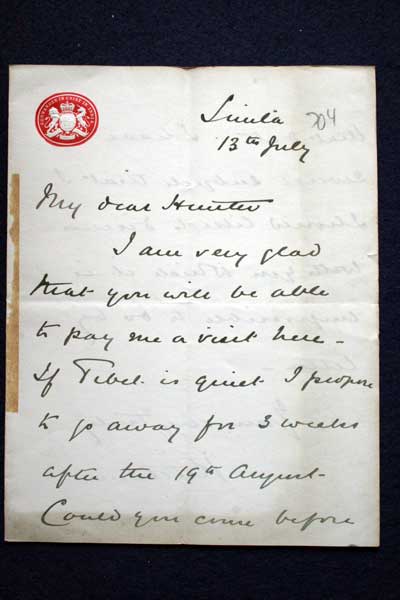 COMMANDER IN CHIEF IN INDIA
Simla
204
13th July
My dear Hunter
I am very glad
that you will be able
to pay me a visit here -
If Tibet is quiet I propose
to go away for 3 weeks
after the 19th August -
Could you come before